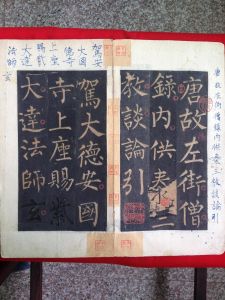 唐故左街僧
錄內供奉三
教談論引
駕大德安國
寺上座賜紫
大達法師玄
唐故左街僧錄內供奉三教談論引
駕大德安國寺上座賜紫大達法師玄